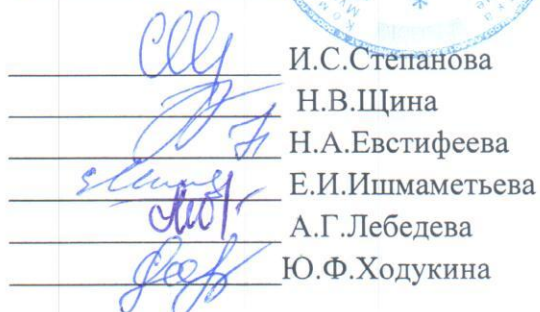 И.С.Степанова
Н.В.Щина
Н.А.Евстифеева
Е.И.Ишмаметьева
А.Г.Лебедева
Ю.Ф.Ходукина